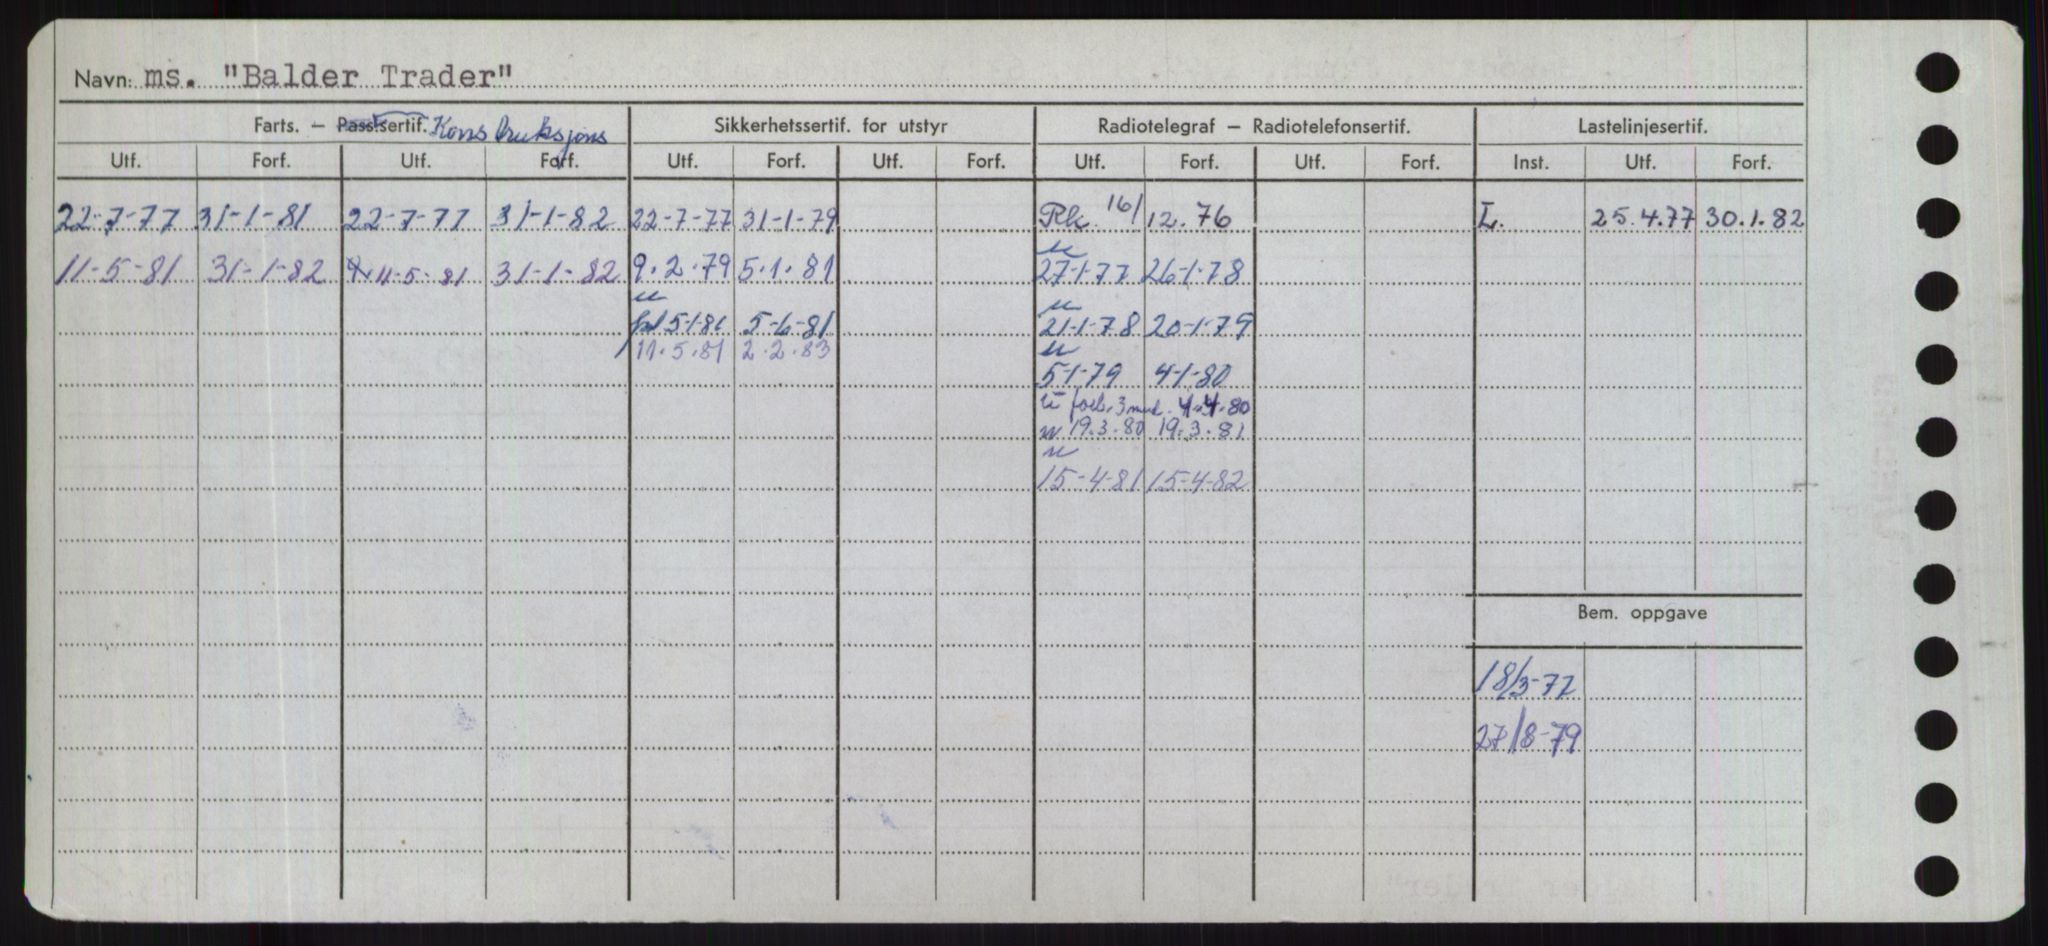 Navn: ms. "Balder Trader"
Farts. – Passsertif. Konstruksjons Sikkerhetssertif. for utstyr Radiotelegraf – Radiotelefonsertif. Lastelinjesertif.
Utf. Forf. Utf. Forf. Utf. Forf. Utf. Forf. Utf. Forf. Utf. Forf. Inst. Utf. Forf.
22-7-77 31-1-81 22-7-77 31-1-82 22-7-77 31-1-79 Rk. 16/12.76 L. 25.4.77 30.1.82
11-5-81 31-1-82 11-5-81 31-1-82 9.2.79 5.1.81 27-1-77 26-1-78
5-1-81 5-6-81 21-1-78 20-1-79
11.5.81 2.2.83
5-1-79 4-1-80
forl. 3 mnd. 4.4.80
19.3.80 19.3.81
15-4-81 15-4-82
Bem. oppgave
18/3-77
27/8-79